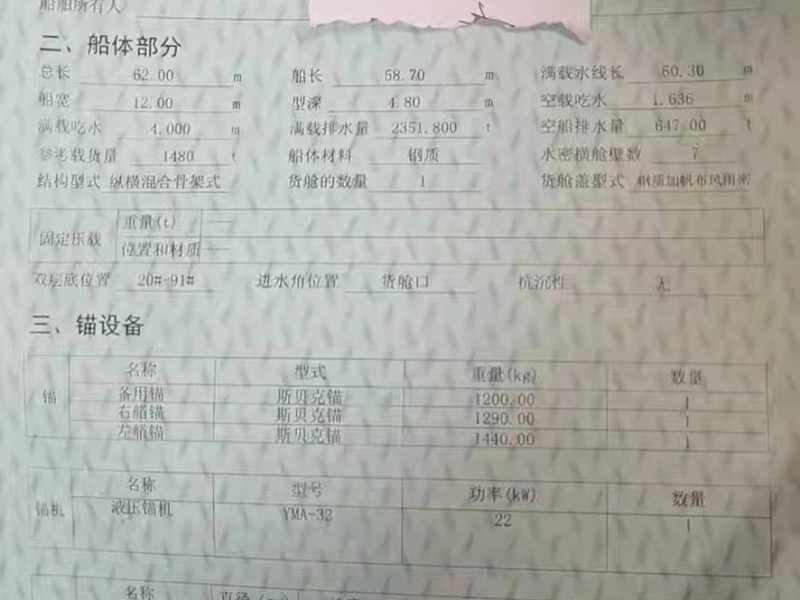 船舶所有人
二、船体部分
总长 62.00 m 船长 58.70 m 满载水线长 60.30 m
船宽 12.00 m 型深 4.80 m 空载吃水 1.636 m
满载吃水 4.000 m 满载排水量 2351.800 t 空船排水量 647.00 t
参考载货量 1480 t 船体材料 钢质 水密横舱壁数 7
结构型式 纵横混合骨架式 货舱的数量 1 货舱盖型式 钢质加帆布风雨密
固定压载 重量(t) ——
位置和材质 ——
双层底位置 20#-91# 进水角位置 货舱口 抗沉性 无
三、锚设备
锚 名称 型式 重量(kg) 数量
备用锚 斯贝克锚 1200.00 1
右艏锚 斯贝克锚 1290.00 1
左艏锚 斯贝克锚 1440.00 1
锚机 名称 型号 功率(kW) 数量
液压锚机 YMA-32 22 1
名称 直径